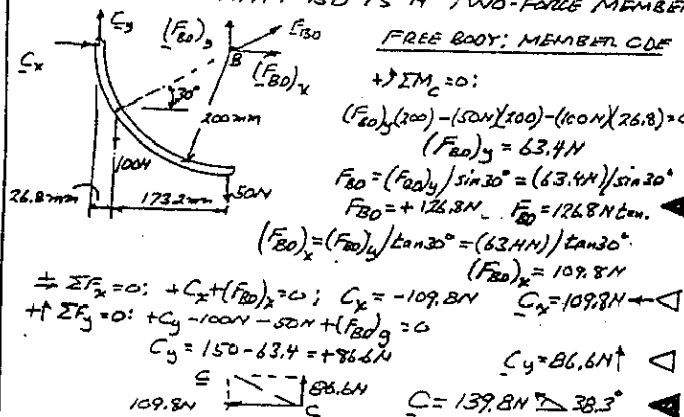 BD IS A TWO-FORCE MEMBER
FREE BODY: MEMBER CDE
Cy
(FBD)y
FBD
Cx
B
(FBD)x
30°
200mm
100N
50N
26.8mm
173.2mm
+↻ ΣMc=0:
(FBD)y(200)-(50N)(200)-(100N)(26.8)=0
(FBD)y = 63.4N
FBD = (FBD)y/sin30° = (63.4N)/sin30°
FBD = +126.8N FBD = 126.8N ten. ◀
(FBD)x = (FBD)y/tan30° = (63.4N)/tan30°
(FBD)x = 109.8N
+→ ΣFx=0: +Cx+(FBD)x=0; Cx = -109.8N Cx = 109.8N ← ◁
+↑ ΣFy=0: +Cy-100N-50N+(FBD)y=0
Cy = 150-63.4 = +86.6N Cy = 86.6N↑ ◁
C
86.6N
109.8N
C
C = 139.8N ⦩ 38.3° ◀